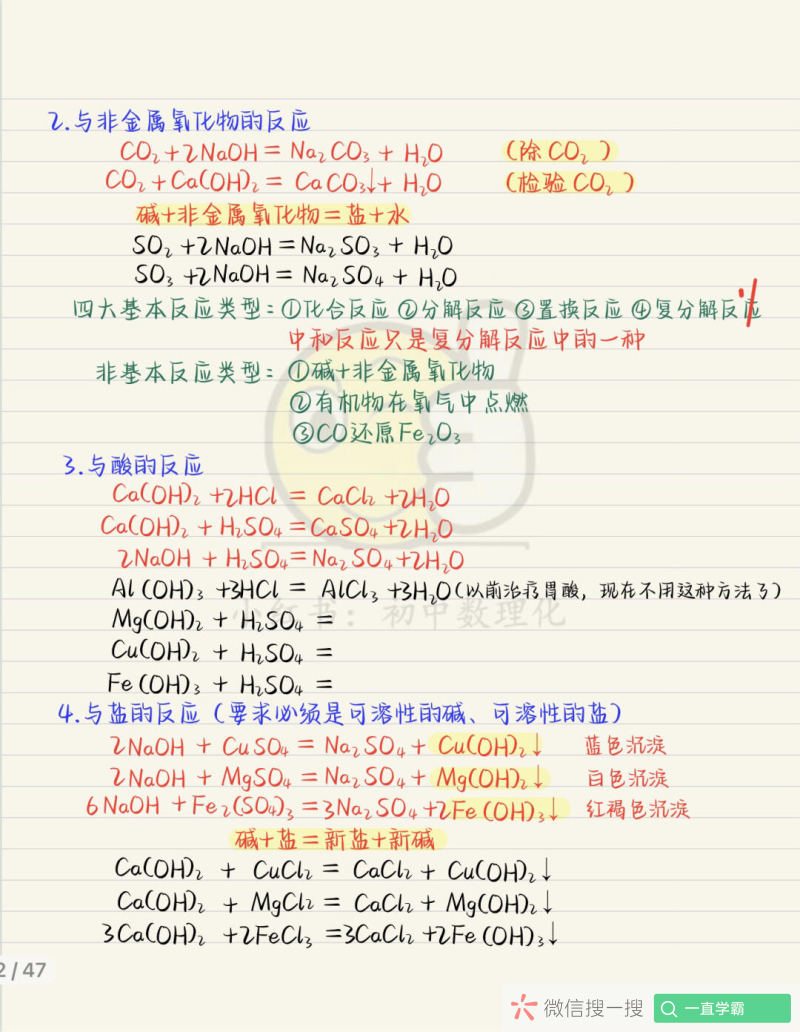 2.与非金属氧化物的反应
CO₂+2NaOH=Na₂CO₃+H₂O (除CO₂)
CO₂+Ca(OH)₂=CaCO₃↓+H₂O (检验CO₂)
碱+非金属氧化物=盐+水
SO₂+2NaOH=Na₂SO₃+H₂O
SO₃+2NaOH=Na₂SO₄+H₂O
四大基本反应类型:①化合反应 ②分解反应 ③置换反应 ④复分解反应
中和反应只是复分解反应中的一种
非基本反应类型: ①碱+非金属氧化物
②有机物在氧气中点燃
③CO还原Fe₂O₃
3.与酸的反应
Ca(OH)₂+2HCl=CaCl₂+2H₂O
Ca(OH)₂+H₂SO₄=CaSO₄+2H₂O
2NaOH+H₂SO₄=Na₂SO₄+2H₂O
Al(OH)₃+3HCl=AlCl₃+3H₂O(以前治疗胃酸，现在不用这种方法了)
小红书：初中数理化
Mg(OH)₂+H₂SO₄=
Cu(OH)₂+H₂SO₄=
Fe(OH)₃+H₂SO₄=
4.与盐的反应（要求必须是可溶性的碱、可溶性的盐）
2NaOH+CuSO₄=Na₂SO₄+Cu(OH)₂↓ 蓝色沉淀
2NaOH+MgSO₄=Na₂SO₄+Mg(OH)₂↓ 白色沉淀
6NaOH+Fe₂(SO₄)₃=3Na₂SO₄+2Fe(OH)₃↓ 红褐色沉淀
碱+盐=新盐+新碱
Ca(OH)₂+CuCl₂=CaCl₂+Cu(OH)₂↓
Ca(OH)₂+MgCl₂=CaCl₂+Mg(OH)₂↓
3Ca(OH)₂+2FeCl₃=3CaCl₂+2Fe(OH)₃↓
2/47
微信搜一搜 一直学霸